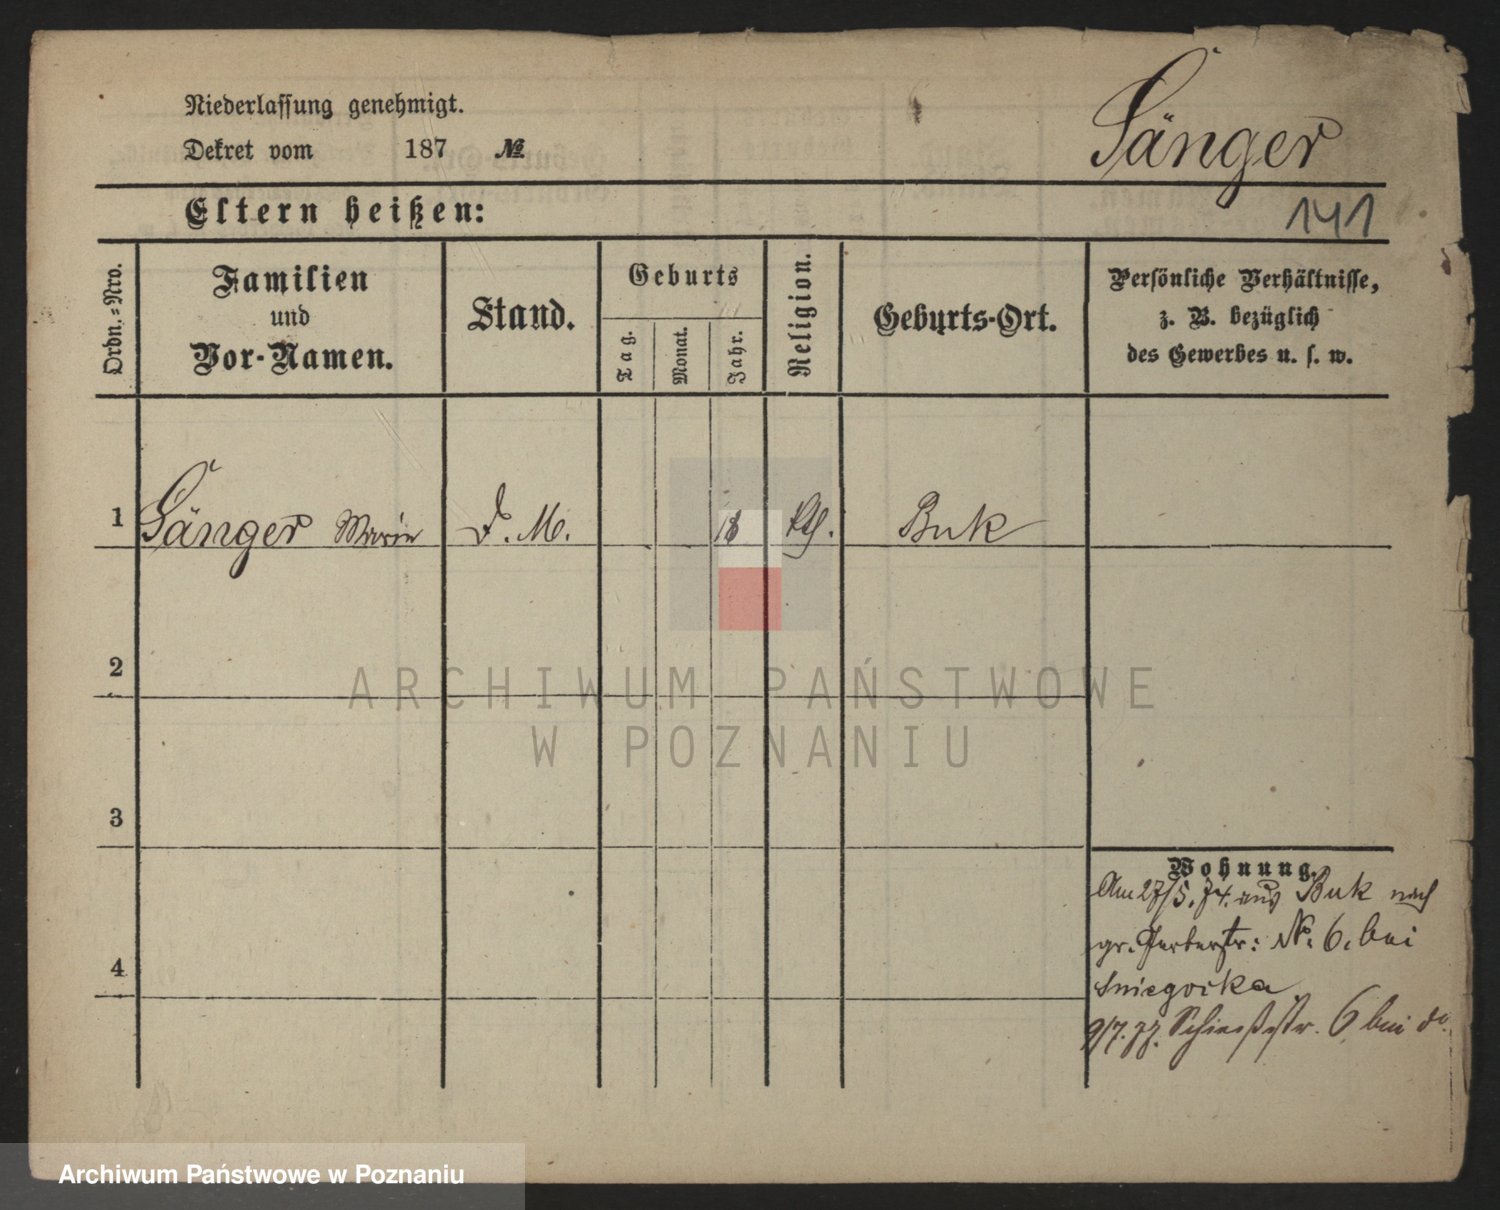 Niederlassung genehmigt.
Dekret vom 187 №
Sänger
Eltern heißen:
141
Ordn.-Nro.
Familien
und
Vor-Namen.
Stand.
Geburts
Tag.
Monat.
Jahr.
Religion.
Geburts-Ort.
Persönliche Verhältnisse,
z. B. bezüglich
des Gewerbes u. s. w.
1 Sänger Marie D. M. 18 Kth. Buk
2
ARCHIWUM PAŃSTWOWE
W POZNANIU
3
Wohnung.
Am 27/5. 74. aus Buk nach
gr. Gerberstr: №. 6. bei
4
Sniegocka
9/7. 77. Schießstr. 6 bei do.
Archiwum Państwowe w Poznaniu